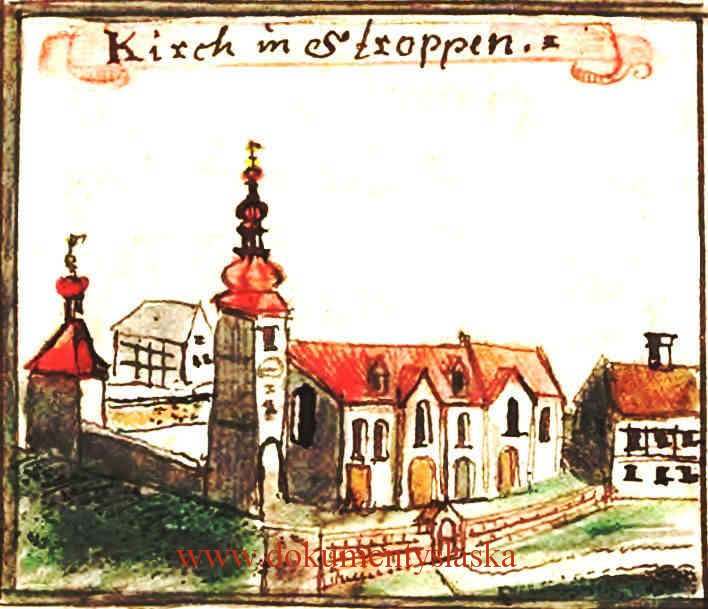 Kirch in Stroppen.
www.dokumentyslaska